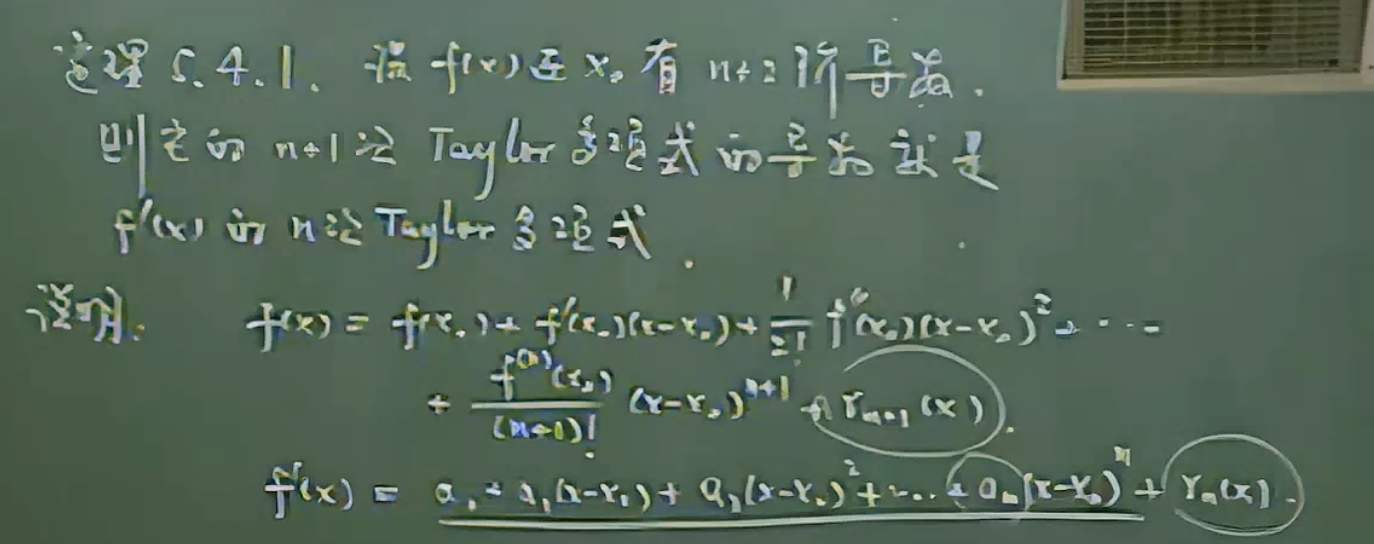 定理 5.4.1. 设 f(x) 在 x₀ 有 n+2 阶导数.
则它的 n+1 次 Taylor 多项式的导数就是
f'(x) 的 n 次 Taylor 多项式.
证明. f(x) = f(x₀) + f'(x₀)(x-x₀) + 1/2! f''(x₀)(x-x₀)² + ···
+ f⁽ⁿ⁾(x₀)/(n+1)! (x-x₀)ⁿ⁺¹ + rₙ₊₁(x).
f'(x) = a₀ + a₁(x-x₀) + a₂(x-x₀)² + ··· + aₙ(x-x₀)ⁿ + rₙ(x).